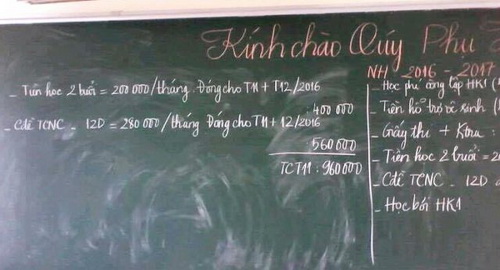 Kính chào Quý Phụ
NH 2016 - 2017
- Tiền học 2 buổi = 200 000/tháng. Đóng cho T11 + T12/2016
400 000
- Cđề TCNC - 12D = 280 000/tháng Đóng cho T11 + 12/2016
560 000
TCT11: 960 000
- Học phí công lập HK1
- Tiền hỗ trợ vệ sinh
- Giấy thi + Ktra
- Tiền học 2 buổi = 20
- Cđề TCNC - 12D
- Học bơi HK1